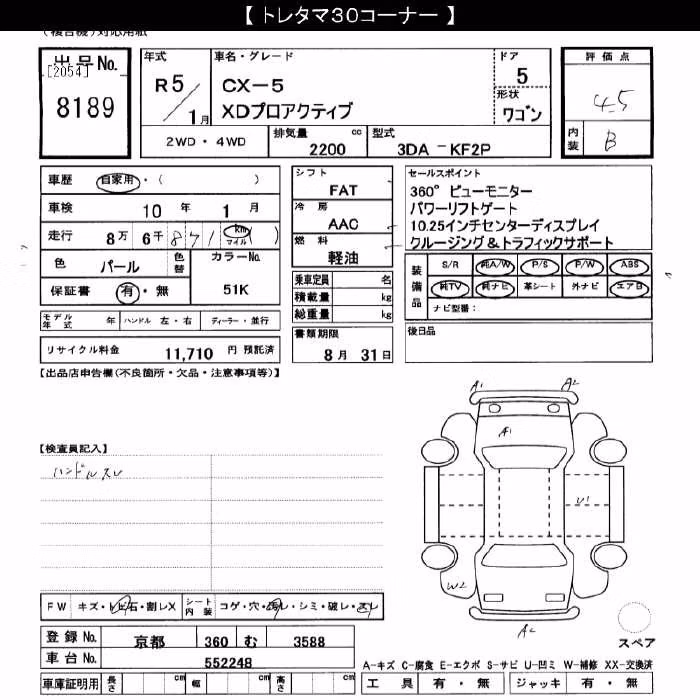 【 トレタマ30コーナー 】
(複合機)対応用紙
出品No. [2054] 8189
年式 R5/1月
車名・グレード CX-5 XDプロアクティブ
ドア 5
形状 ワゴン
2WD・4WD
排気量 2200 cc
型式 3DA-KF2P
評価点 4.5
内装 B
車歴 自家用・( )
車検 10年 1月
走行 8万6千871 (km マイル)
色 パール 色替 カラーNo. 51K
保証書 有・無
シフト FAT
冷房 AAC
燃料 軽油
乗車定員 名
積載量 kg
総重量 kg
セールスポイント
360°ビューモニター
パワーリフトゲート
10.25インチセンターディスプレイ
クルージング&トラフィックサポート
装備品 S/R 純A/W P/S P/W ABS
純TV 純ナビ 革シート 外ナビ エアB
ナビ型番:
モデル年式 年 ハンドル 左・右 ディーラー・並行
書類期限 8月 31日
後日品
リサイクル料金 11,710 円 預託済
【出品店申告欄(不良箇所・欠品・注意事項等)】
A1 A2
A1
【検査員記入】
ハンドルスレ
U1
W2
A2
FW キズ・トビ石・割レX シート内装 コゲ・穴・汚レ・シミ・破レ・スレ
スペア
登録No. 京都 360 む 3588
車台No. 552248
A-キズ C-腐食 E-エクボ S-サビ U-凹ミ W-補修 XX-交換済
車庫証明用 長さ cm 幅 cm 高さ cm
工具 有・無 ジャッキ 有・無